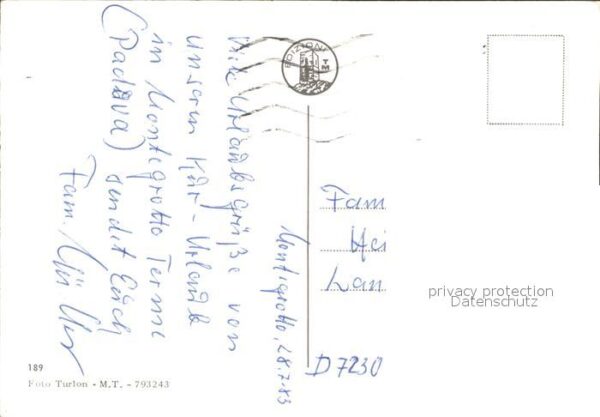 Viele Urlaubsgrüße von
unserm Kur-Urlaub
in Montegrotto Terme
(Padova) sendet Euch
Fam.
Montegrotto, 28.7.83
EDIZIONI
TM
Fam
Hei
Lan
D 7230
privacy protection
Datenschutz
189
Foto Turlon - M.T. - 793243